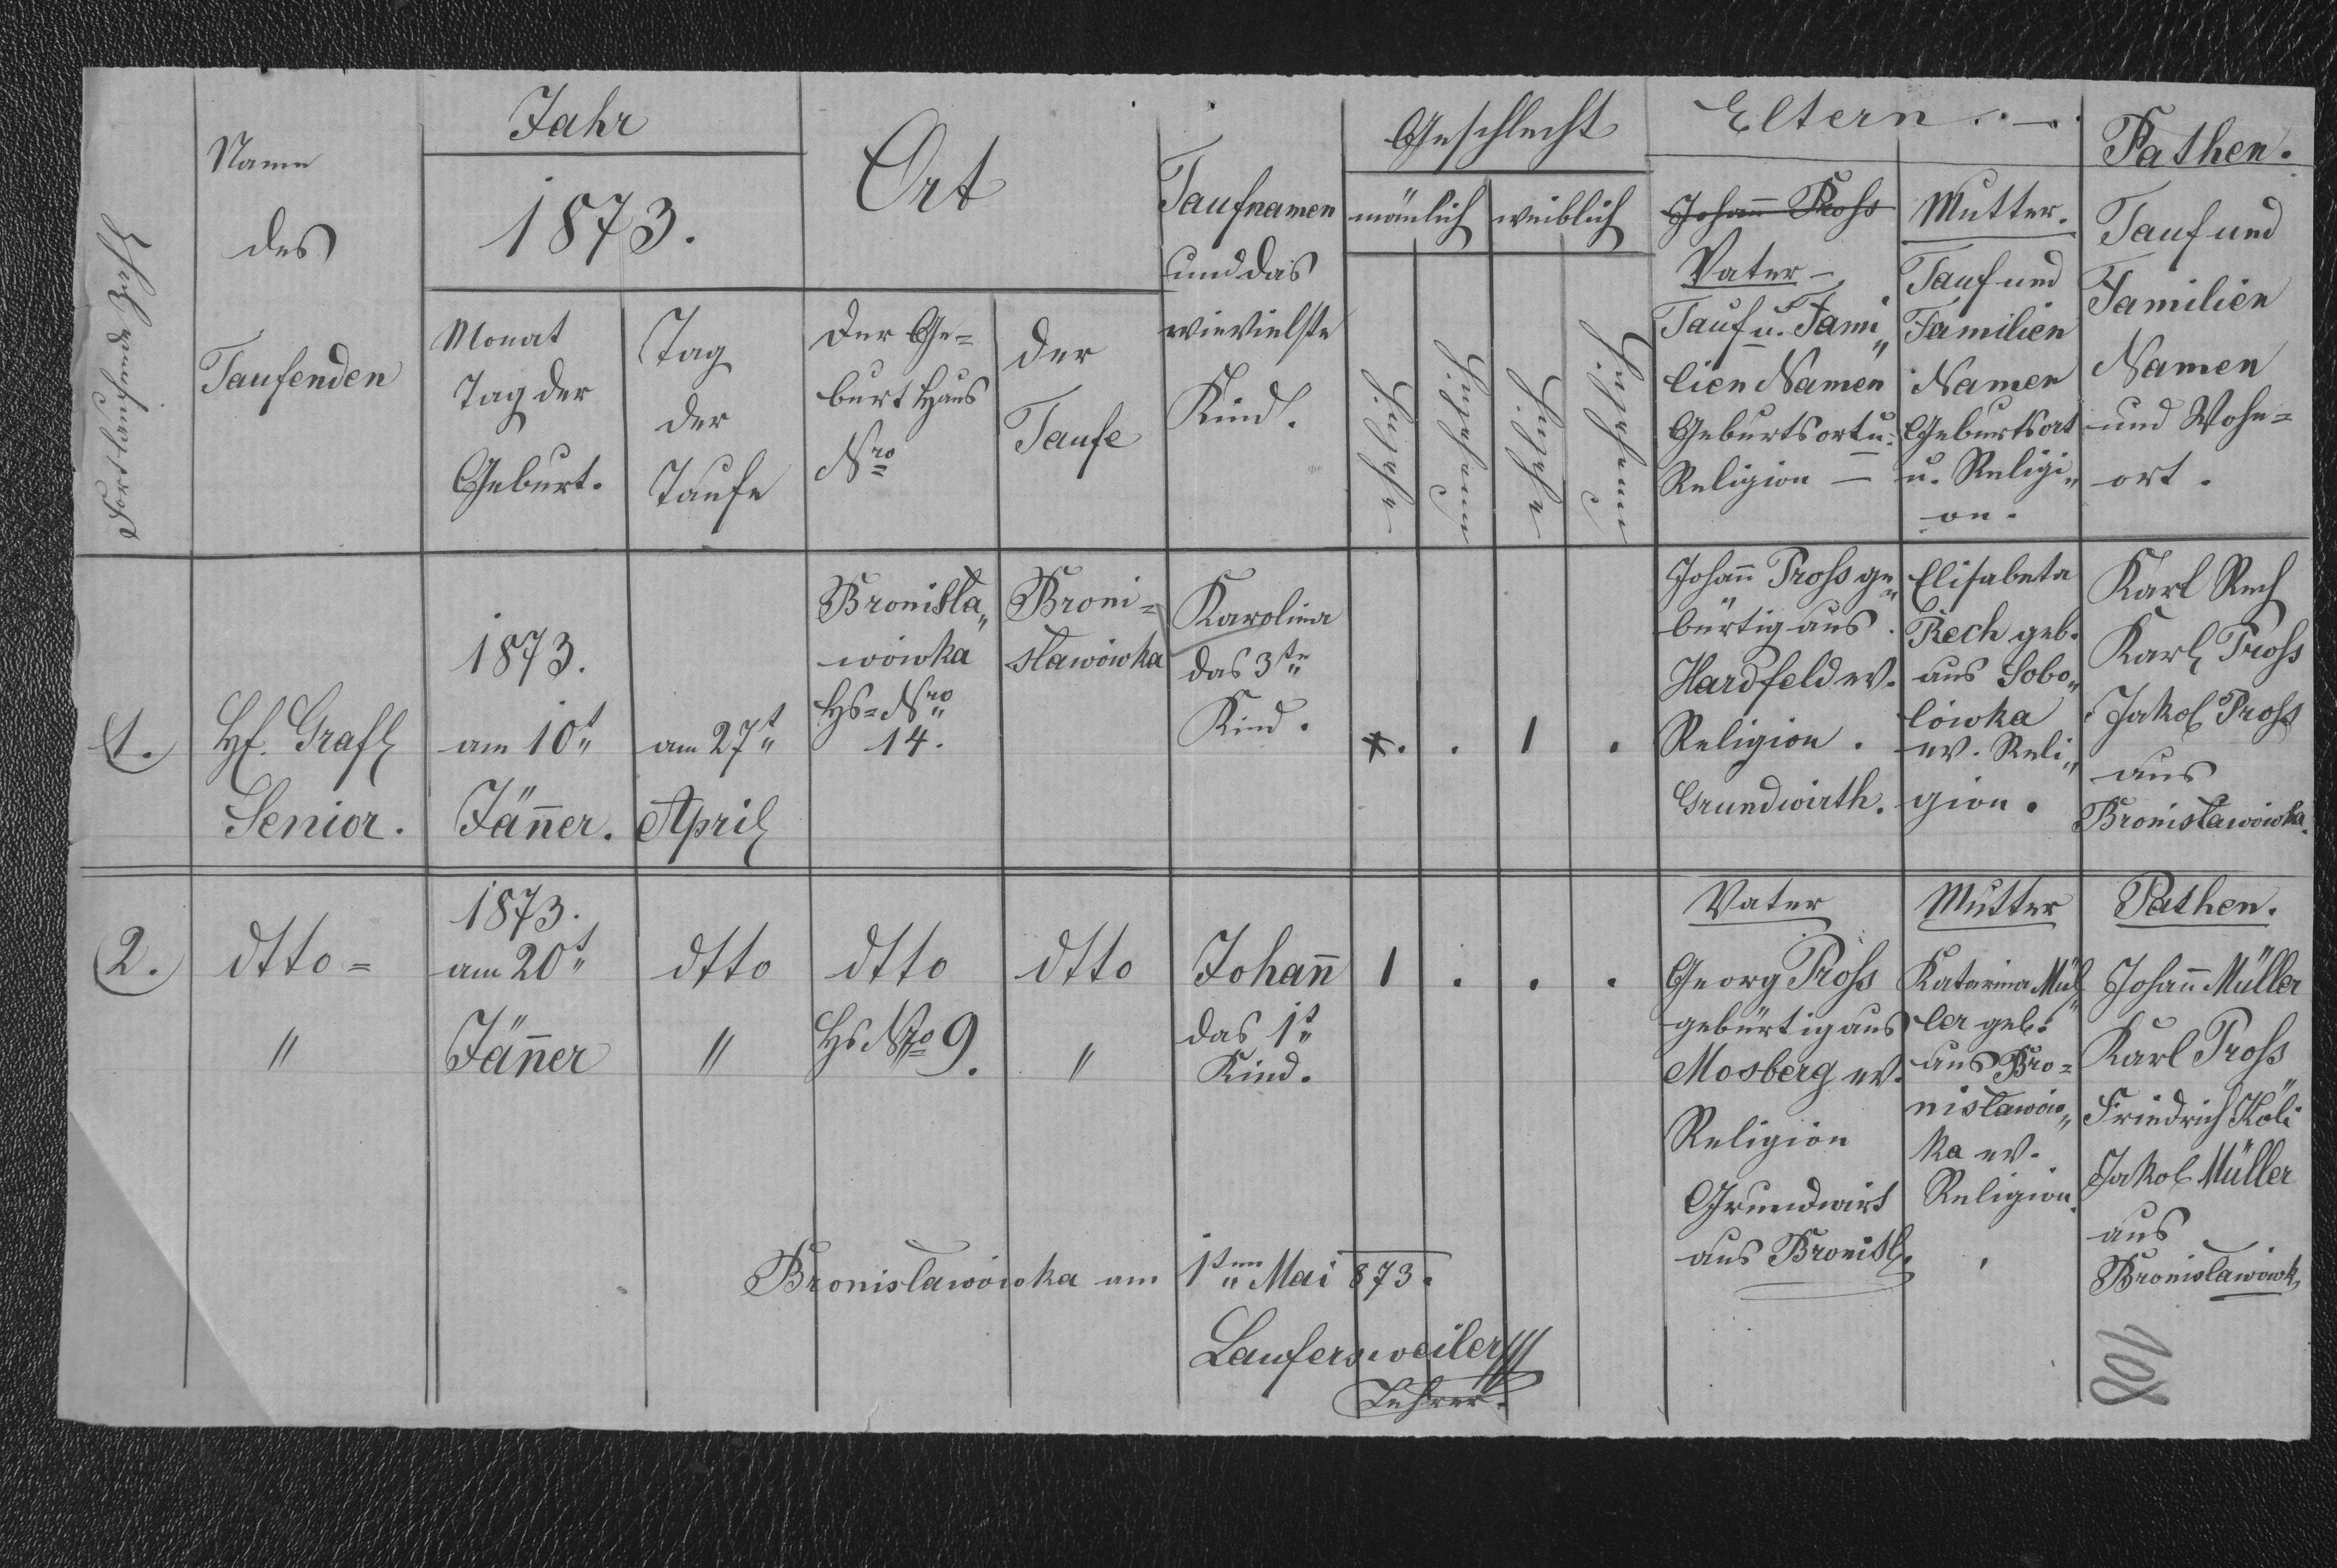 Fortlaufende Zahl
Name
des
Taufenden
Jahr
1873.
Monat
Tag der
Geburt.
Tag
der
Taufe
Ort
Der Ge=
burt Haus
Nro
der
Taufe
Taufnamen
und das
wievielste
Kind.
Geschlecht
mänlich
weiblich
Eltern . — .
Johan̄ Pross
Vater —
Tauf u. Fami„
lien Namen
Geburtsort u.
Religion —
Mutter.
Tauf und
Familien
Namen
Geburtsort
u. Religi„
on.
Pathen.
Tauf und
Familien
Namen
und Wohn=
ort.
1.
H. Grafl
Senior.
1873.
am 10t
Jän̄er.
am 27t
April
Bronisła„
wówka
Hs=Nro
14.
Broni=
sławówka
Karolina
das 3te
Kind.
*. . 1 .
Johan̄ Pross ge„
bürtig aus
Hardfeld ev.
Religion.
Grundwirth.
Elisabeta
Rech geb.
aus Sobo„
lówka
ev. Reli„
gion.
Karl Rech
Karl Pross
Jakob Pross
aus
Bronisławówka.
2.
dtto=
"
1873.
am 20t
Jän̄er
dtto
"
dtto
Hs Nro 9.
dtto
"
Johan̄
das 1t
Kind.
1 . . .
Vater
Georg Pross
gebürtig aus
Mosberg ev.
Religion
Grundwirt
aus Bronisł.
Mutter
Katarina Mül„
ler geb.
aus Bro=
nisławów„
ka ev.
Religion.
Pathen.
Johan̄ Müller
Karl Pross
Friedrich Köli
Jakob Müller
aus
Bronisławówk
Bronisławówka am 1ten Mai 873.
Laufersweiler
Lehrer.
108